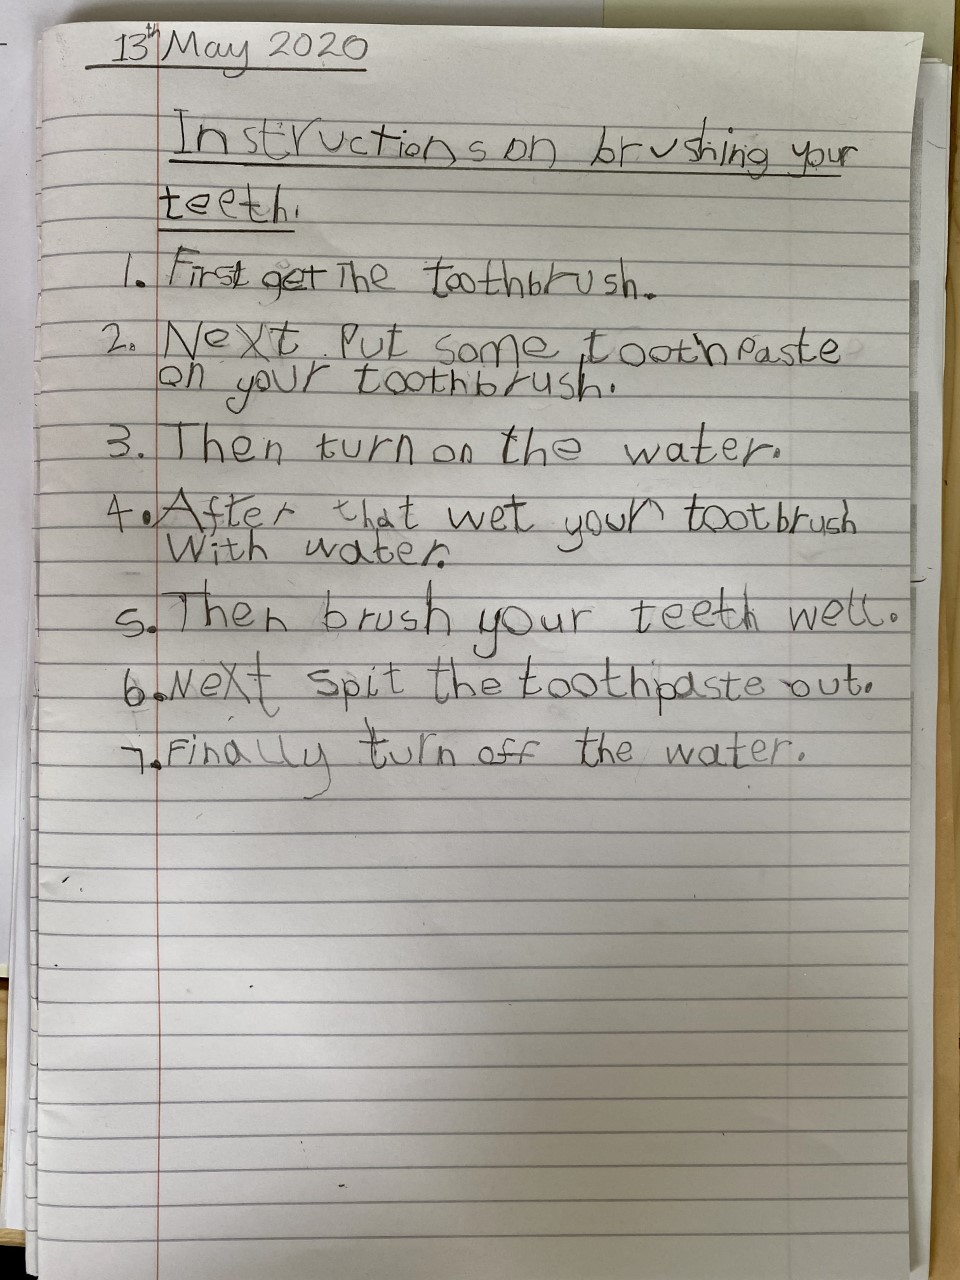 13th May 2020
Instructions on brushing your
teeth.
1. First get The toothbrush.
2. Next Put some toothPaste
on your toothbrush.
3. Then turn on the water.
4. After that wet your tootbrush
With water.
5. Then brush your teeth well.
6. Next spit the toothpaste out.
7. Finally turn off the water.